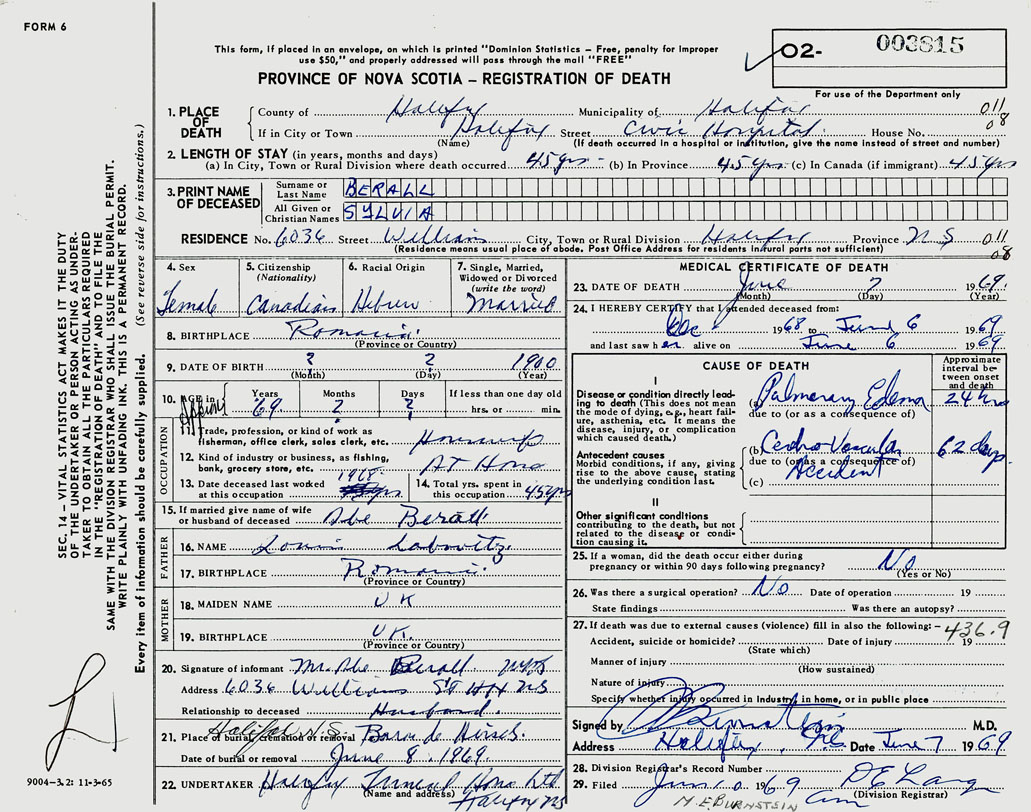 FORM 6
This form, if placed in an envelope, on which is printed "Dominion Statistics – Free, penalty for improper
use $50," and properly addressed will pass through the mail "FREE"
PROVINCE OF NOVA SCOTIA – REGISTRATION OF DEATH
O2- 003815
For use of the Department only
1. PLACE OF DEATH
County of Halifax Municipality of Halifax 011
If in City or Town Halifax Street Civic Hospital House No. 08
(Name) (If death occurred in a hospital or institution, give the name instead of street and number)
2. LENGTH OF STAY (in years, months and days)
(a) In City, Town or Rural Division where death occurred 45 yrs - (b) In Province 45 yrs (c) In Canada (if immigrant) 45 yrs
3. PRINT NAME OF DECEASED
Surname or Last Name BERALL
All Given or Christian Names SYLVIA
RESIDENCE No. 6036 Street William City, Town or Rural Division Halifax Province N S 011
(Residence means usual place of abode. Post Office Address for residents in rural parts not sufficient) 08
4. Sex Female
5. Citizenship (Nationality) Canadian
6. Racial Origin Hebrew
7. Single, Married, Widowed or Divorced (write the word) Married
8. BIRTHPLACE Romania
(Province or Country)
9. DATE OF BIRTH ? ? 1900
(Month) (Day) (Year)
10. AGE in Years 69 Months ? Days ? If less than one day old hrs. or min.
OCCUPATION
11. Trade, profession, or kind of work as fisherman, office clerk, sales clerk, etc. Housewife
12. Kind of industry or business, as fishing, bank, grocery store, etc. At Home
13. Date deceased last worked at this occupation 1968
14. Total yrs. spent in this occupation 45 yrs
15. If married give name of wife or husband of deceased Abe Berall
FATHER
16. NAME Louis Labowitz
17. BIRTHPLACE Romania
(Province or Country)
MOTHER
18. MAIDEN NAME U K
19. BIRTHPLACE U K.
(Province or Country)
20. Signature of informant Mr. Abe Berall
Address 6036 William St Hfx NS
Relationship to deceased Husband.
21. Place of burial, cremation or removal Halifax N.S. Baron de Hirsch.
Date of burial or removal June 8, 1969.
22. UNDERTAKER Halifax Funeral Home Ltd
(Name and address) Halifax NS
MEDICAL CERTIFICATE OF DEATH
23. DATE OF DEATH June 7 1969.
(Month) (Day) (Year)
24. I HEREBY CERTIFY that I attended deceased from:
Dec 1968 to June 6 1969
and last saw her alive on June 6 1969
CAUSE OF DEATH
Approximate interval between onset and death
I
Disease or condition directly leading to death (This does not mean the mode of dying, e.g., heart failure, asthenia, etc. It means the disease, injury, or complication which caused death.)
(a) Pulmonary Edema 24 hrs
due to (or as a consequence of)
Antecedent causes
Morbid conditions, if any, giving rise to the above cause, stating the underlying condition last.
(b) Cerebro Vascular 62 days
due to (or as a consequence of)
Accident
(c)
II
Other significant conditions
contributing to the death, but not related to the disease or condition causing it.
25. If a woman, did the death occur either during pregnancy or within 90 days following pregnancy? No
(Yes or No)
26. Was there a surgical operation? No Date of operation 19
State findings Was there an autopsy?
27. If death was due to external causes (violence) fill in also the following: – 436.9
Accident, suicide or homicide? Date of injury 19
(State which)
Manner of injury
(How sustained)
Nature of injury
Specify whether injury occurred in Industry, in home, or in public place
Signed by Burnstein M.D.
Address Halifax, NS Date June 7 1969
28. Division Registrar's Record Number
29. Filed Jun 10 1969 D E Lang
(Division Registrar)
M E BURNSTEIN
SEC. 14 – VITAL STATISTICS ACT MAKES IT THE DUTY
OF THE UNDERTAKER OR PERSON ACTING AS UNDER-
TAKER TO OBTAIN ALL THE PARTICULARS REQUIRED
IN THE "REGISTRATION OF DEATH" AND TO FILE THE
SAME WITH THE DIVISION REGISTRAR WHO SHALL ISSUE THE BURIAL PERMIT.
WRITE PLAINLY WITH UNFADING INK. THIS IS A PERMANENT RECORD.
Every item of information should be carefully supplied. (See reverse side for instructions.)
9004-3.2: 11-3-65